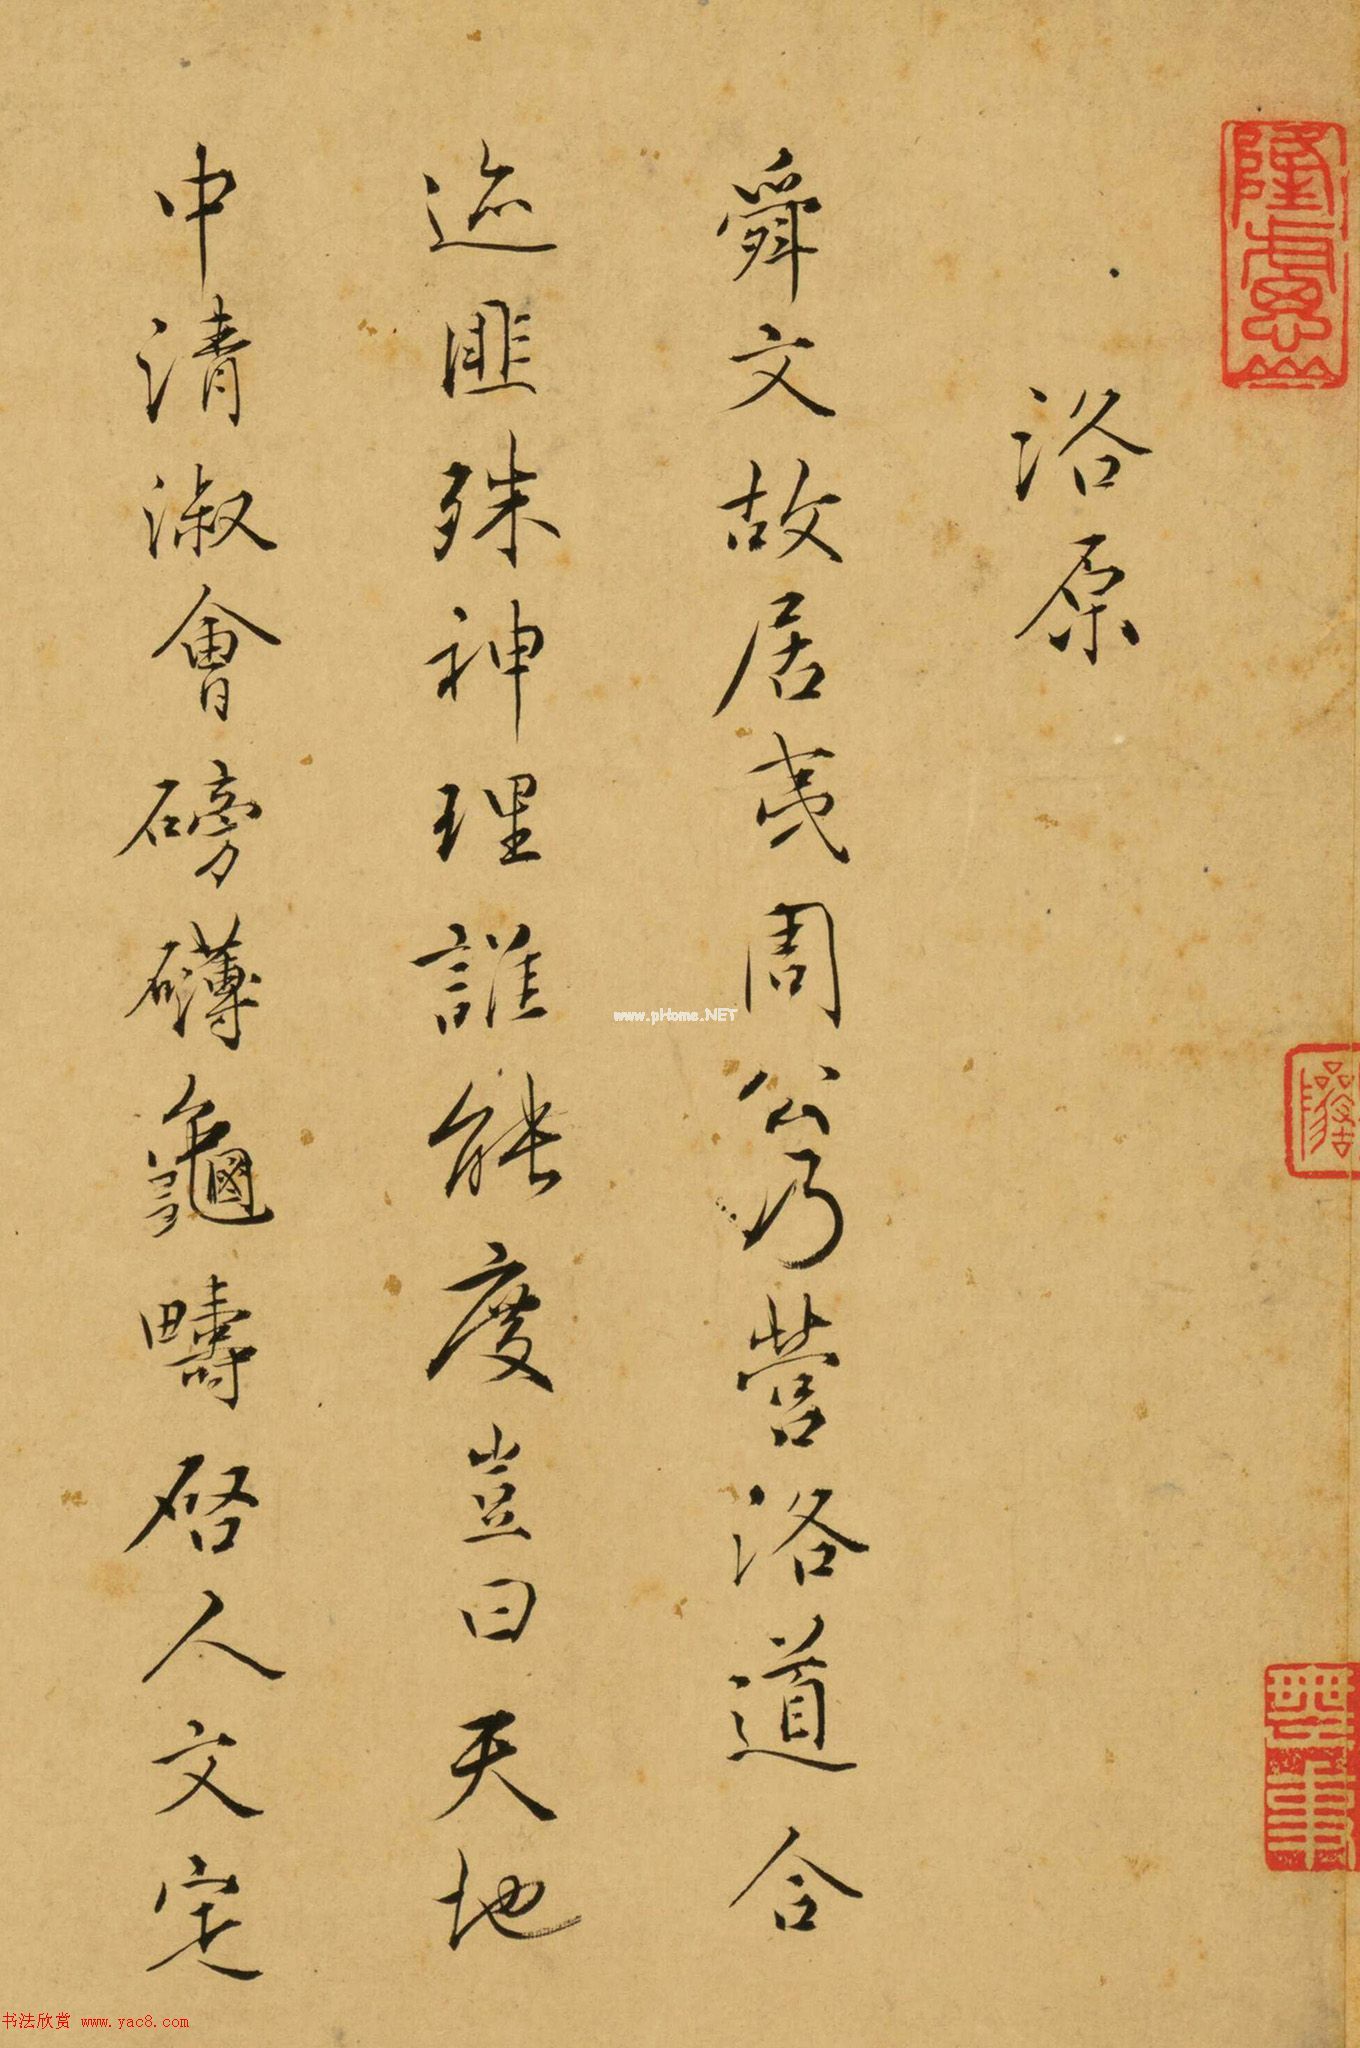 洛原
舜文故居夷周公乃营洛道合
迹匪殊神理誰能度豈曰天地
中清淑會磅礴龜疇启人文定
隆慮山
www.pHome.NET
书法欣赏 www.yac8.com